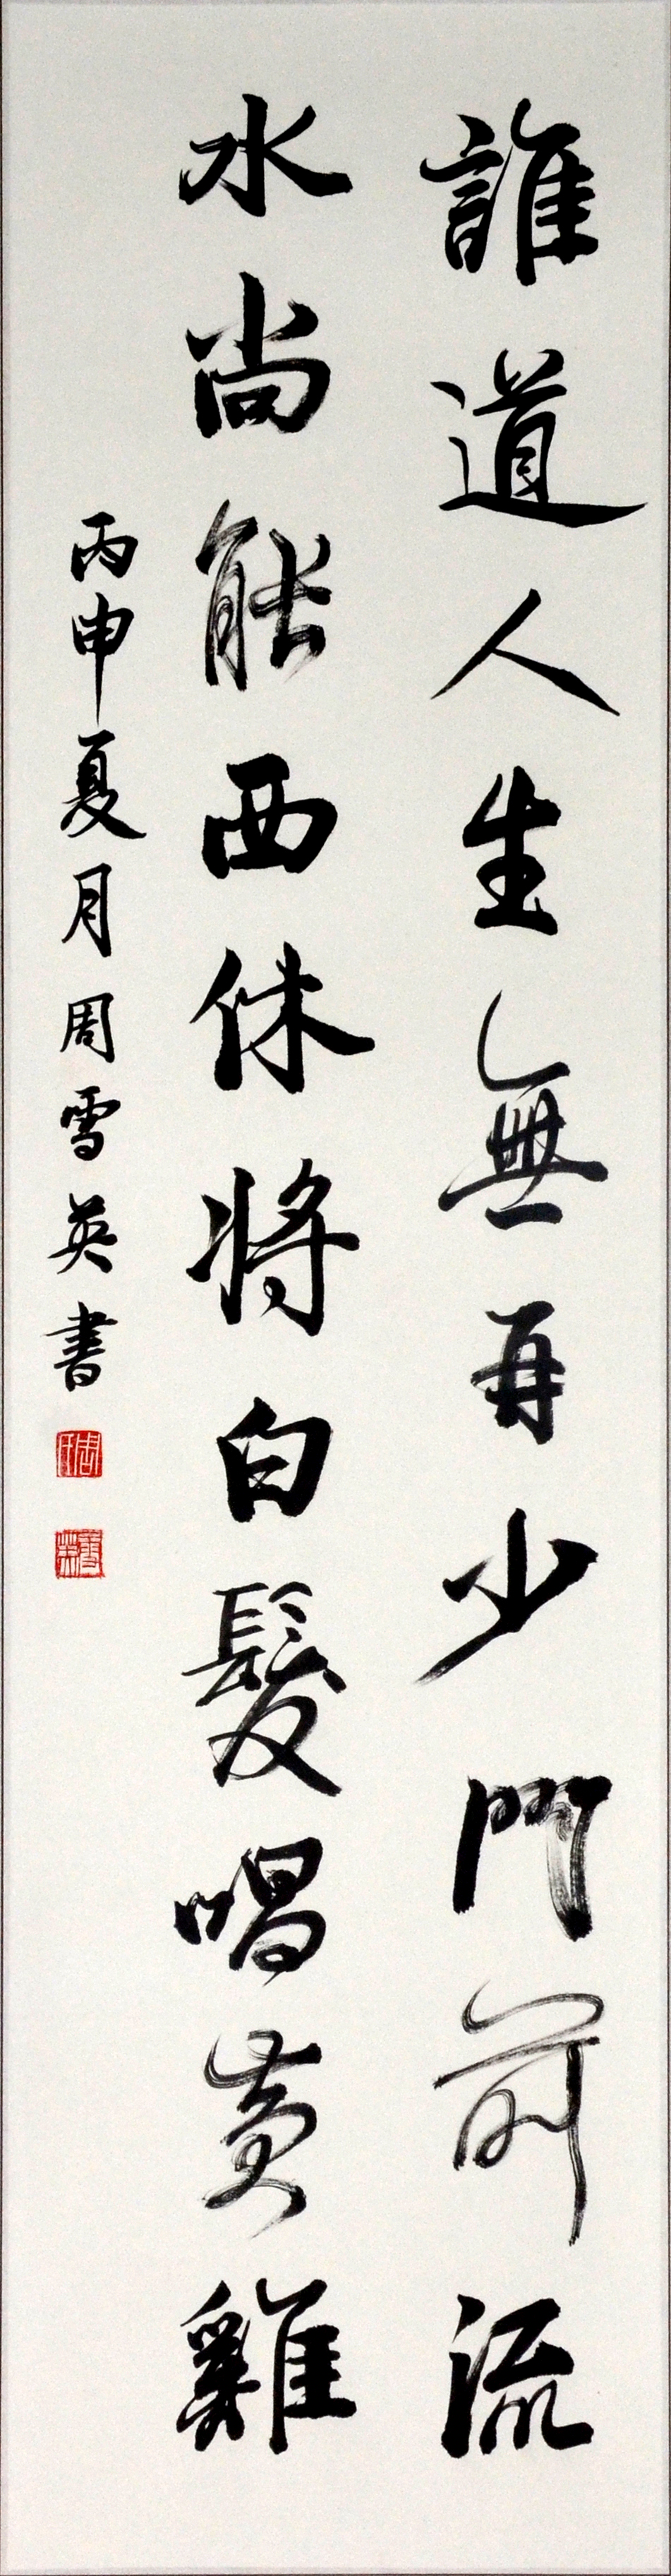 誰道人生無再少門前流
水尚能西休將白髮唱黃雞
丙申夏月周雪英書